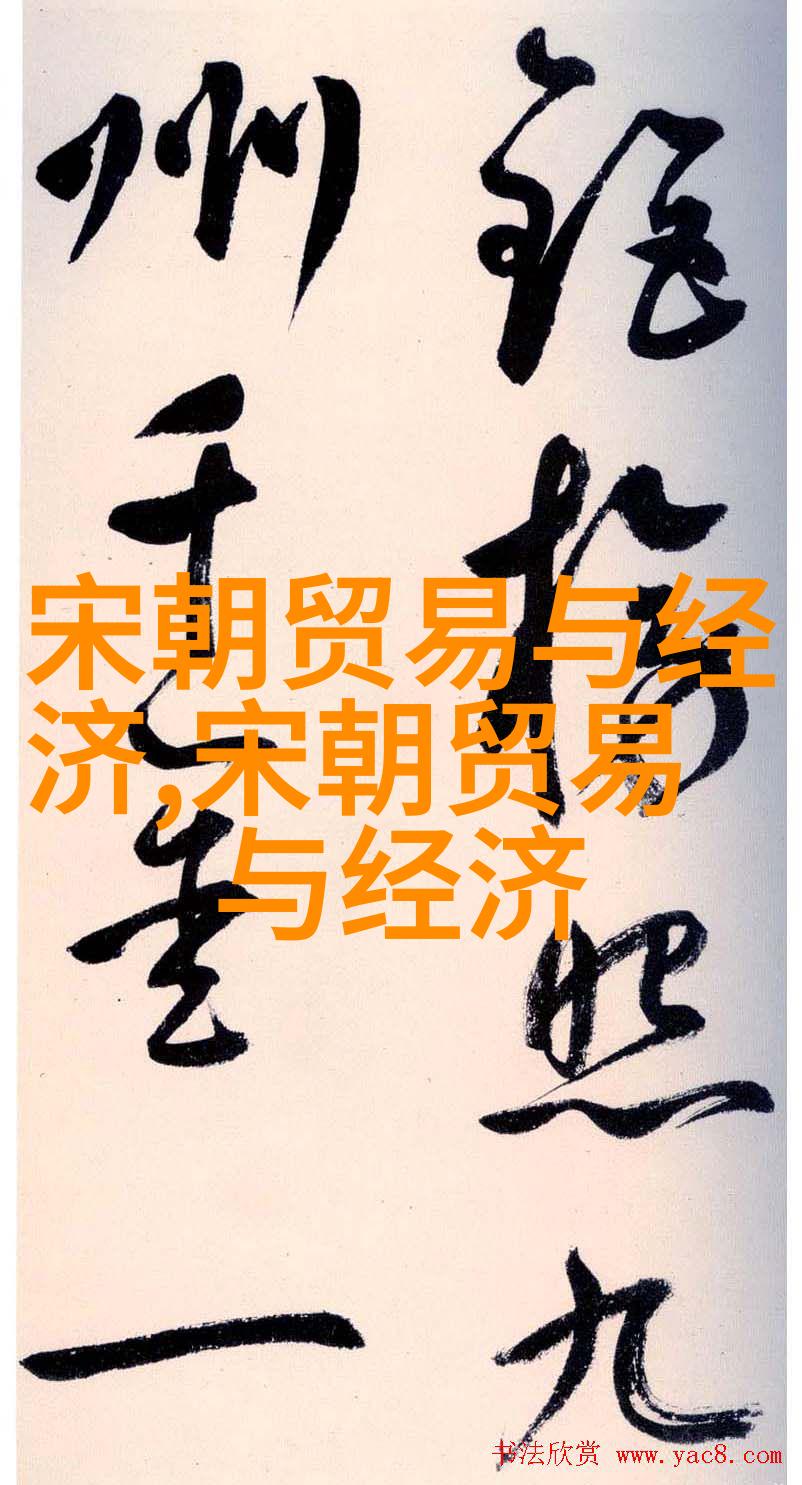 宋朝贸易与经
济,宋朝贸易
与经济
照九
州千一
书法欣赏 www.yac8.com